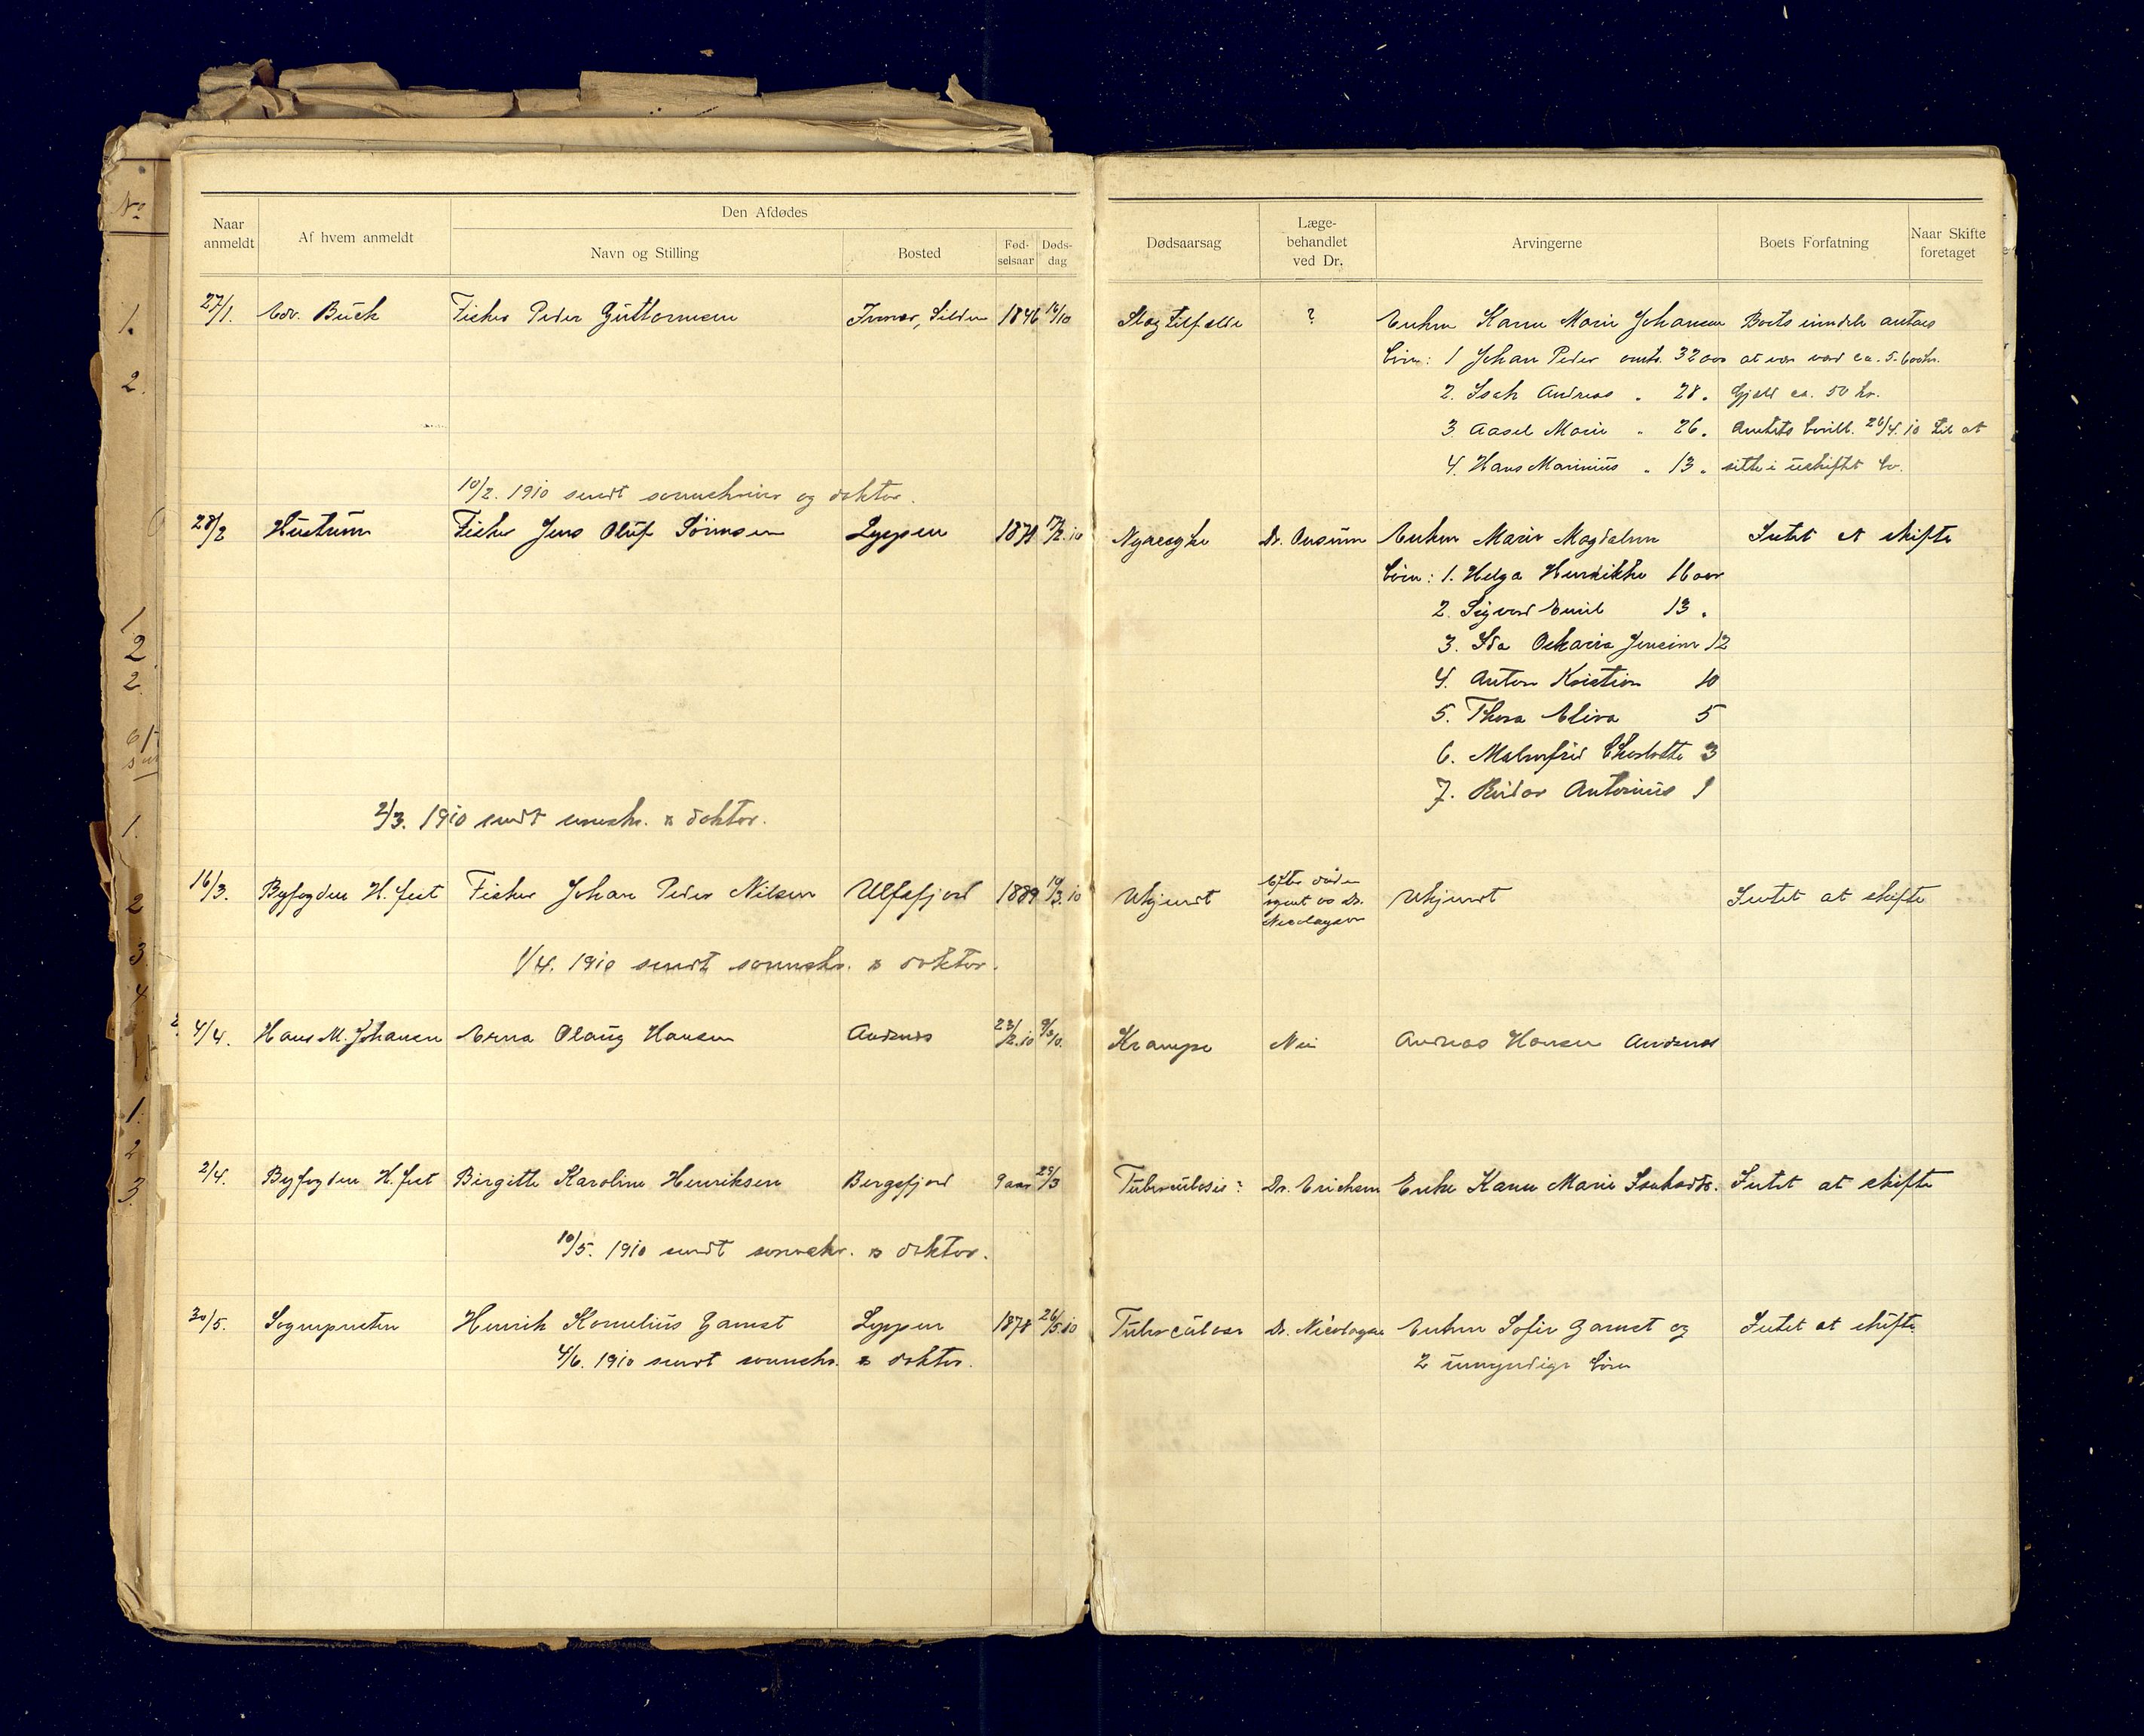 No
Naar anmeldt
Af hvem anmeldt
Den Afdødes
Navn og Stilling
Bosted
Fød-selsaar
Døds-dag
Dødsaarsag
Læge-behandlet ved Dr.
Arvingerne
Boets Forfatning
Naar Skifte foretaget
27/1. Edv. Buck Fisker Peder Guttormsen Silden 1846 Slagtilfælde ? Enken Karen Marie Johansen Boets eiendele antaes
Børn: 1 Johan Peder omtr. 32 aar at være værd ca. 5-600 kr.
2. Isak Andreas " 28 " Gjæld ca. 50 kr.
3 Aasel Marie " 26 " Amtets bevill. 26/4. 10 til at
4. Hans Marinius " 13 " sitte i uskiftet bo.
10/2. 1910 sendt sorenskriver og doktor.
28/2 Hustruen Fisker Jens Oluf Sörensen Loppen 1871 17/2.10 Nyresyke Dr. Enken Marie Magdalena Intet at skifte
Börn: 1. Helga Henrikke 16 aar
2. Sigvard Emil 13 "
3. Ida Oskaria Jensine 12
4. Anton Kristian 10
5. Thora Elina 5
6. Malmfrid Charlotte 3
7. Reidar Antonius 1
2/3. 1910 sendt sorenskr. & doktor.
16/3. Byfogden H.fest Fisker Johan Peder Nilsen Ulfsfjord 1889 10/3.10 Ukjendt Efter døden Dr. Nicolaysen Ukjendt Intet at skifte
1/4. 1910 sendt sorenskr. & doktor.
4/4. Hans M. Johansen Erna Olaug Hansen Andsnes 23/2.10 9/3 10. Krampe Nei Andreas Hansen Andsnes
2/4. Byfogden H.fest Birgitte Karoline Henriksen Bergsfjord 9 aar 25/3 Tuberculosis? Dr. Erichsen Enke Karen Marie Isaksdtr. Intet at skifte
10/5. 1910 sendt sorenskr. & doktor.
30/5. Sognepresten Henrik Kornelius Gamst Loppen 1878 26/5.10 Tuberculose Dr. Nicolaysen Enken Sofie Gamst og Intet at skifte
4/6. 1910 sendt sorenskr. & doktor. 2 umyndige börn